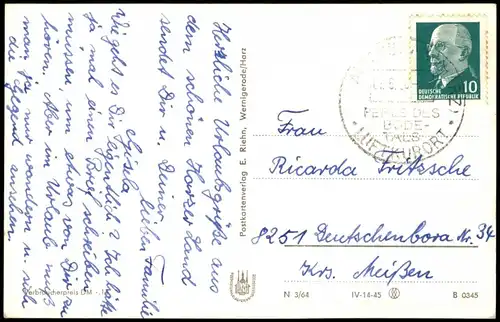 Herzliche Urlaubsgrüße aus
dem schönen Harzer Land
sendet Dir u. Deiner
lieben Familie
Gisela
Wie geht es Dir eigentlich? Ich hätte
ja mal einen Brief schreiben
müssen, um etwas von Dir zu
hören. Aber im Urlaub muß
man ja nur wandern u. sich
die Gegend ansehen.
Verbraucherpreis DM -,
Postkartenverlag E. Riehn, Wernigerode/Harz
DEUTSCHE
DEMOKRATISCHE REPUBLIK
10
PERLE DES
BODE-
TALS
LUFTKURORT
Frau
Ricarda Fritzsche
8251 Deutschenbora Nr. 34
Krs. Meißen
N 3/64 IV-14-45 B 0345